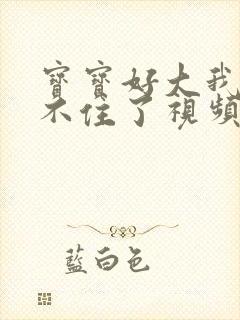 寶寶好大我
不住了視頻
藍白色